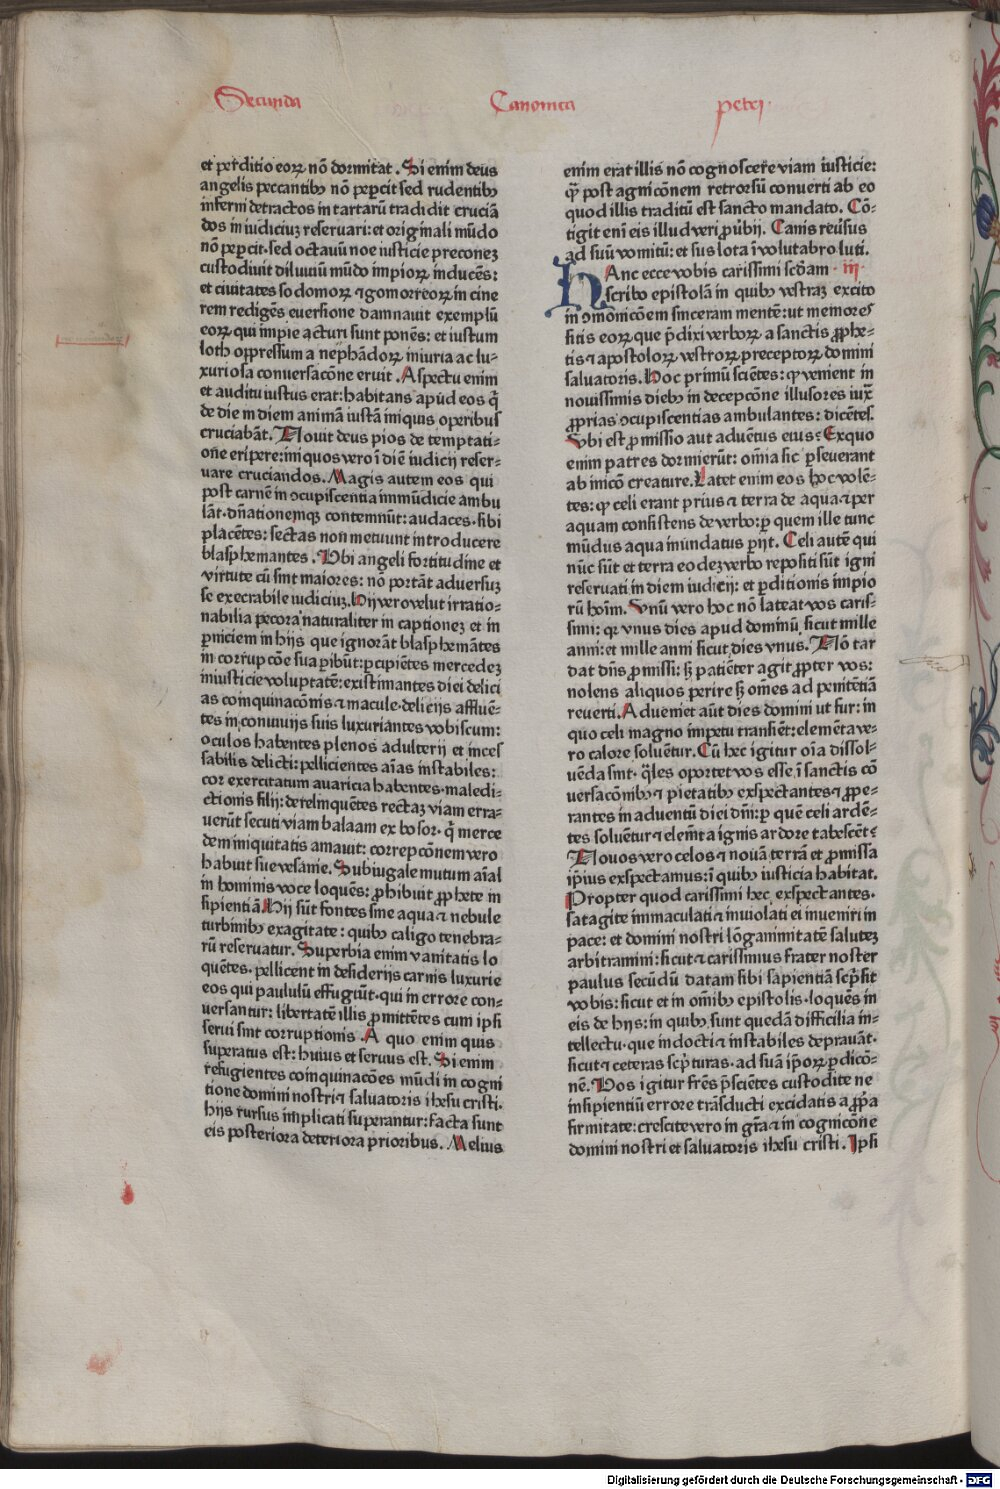 Secunda Canonica petri
et perditio eorꝝ nō dormitat. Si enim deus
angelis peccantibꝫ nō peꝑcit sed rudentibꝫ
inferni detractos in tartarū tradidit cruciā
dos in iudiciuꝫ reseruari: et originali mūdo
nō peꝑcit·sed octauū noe iusticie preconeꝫ
custodiuit diluuiū mūdo impioꝝ inducēs:
et ciuitates sodomoꝝ ⁊gomorreoꝝ in cine
rem redigēs euersione damnauit exemplū
eoꝝ qui impie acturi sunt ponēs: et iustum
loth oppressum a nephādoꝝ iniuria ac lu⸗
xuriosa conuersacōne eruit. Aspectu enim
et auditu iustus erat: habitans apud eos q̄
de die in diem animā iustā iniquis operibus
cruciabāt. Nouit deus pios de temptati⸗
one eripere: iniquos vero ī diē iudicij reser⸗
uare cruciandos. Magis autem eos qui
post carnē in ↄcupiscentia immūdicie ambu
lāt·dn̄ationemqꝫ contemnūt: audaces·sibi
placētes: sectas non metuunt introducere
blasphemantes. Ubi angeli fortitudine et
virtute cū sint maiores: nō portāt aduersuꝫ
se execrabile iudiciuꝫ. Hij vero velut irratio⸗
nabilia pecora naturaliter in captioneꝫ et in
ꝑniciem in hijs que ignorāt blasphemātes
in corrupcōe sua ꝑibūt: ꝑcipiētes mercedeꝫ
iniusticie voluptatē: existimantes diei delici
as coinquinacōnis ⁊ macule·delicijs affluē⸗
tes in conuiuijs suis luxuriantes vobiscum:
oculos habentes plenos adulterij et inces
sabilis delicti: pellicientes aīas instabiles:
cor exercitatum auaricia habentes·maledi⸗
ctionis filij: derelinquētes rectaꝫ viam erra⸗
uerūt secuti viam balaam ex bosor· q̄ merce
dem iniquitatis amauit: correpcōnem vero
habuit sue vesanie. Subiugale mutum aīal
in hominis voce loquēs: ꝓhibuit ꝓphete in
sipientiā Hij sūt fontes sine aqua ⁊ nebule
turbinibꝫ exagitate: quibꝫ caligo tenebra⸗
rū reseruatur. Superbia enim vanitatis lo
quētes·pellicent in desiderijs carnis luxurie
eos qui paululū effugiūt·qui in errore con⸗
uersantur: libertatē illis ꝓmittētes cum ipsi
serui sint corruptionis. A quo enim quis
superatus est: huius et seruus est. Si enim
refugientes coinquinacōes mūdi in cogni
tione domini nostri ⁊ saluatoris ihesu cristi·
hijs rursus implicati superantur: facta sunt
eis posteriora deteriora prioribus. Melius
enim erat illis nō cognoscere viam iusticie:
qꝫ post agnicōnem retrorsū conuerti ab eo
quod illis traditū est sancto mandato. Cō⸗
tigit enī eis illud veri ꝓuūbij. Canis reūsus
ad suū vomitū: et sus lota ī volutabro luti.
HAnc ecce vobis carissimi scd̄am · iij·
scribo epistolā in quibꝫ vestraꝫ excito
in ↄmonicōem sinceram mentē: ut memores
sitis eoꝝ que p̄dixi verboꝝ a sanctis ꝓphe⸗
tis ⁊ apostoloꝝ vestroꝝ preceptoꝝ domini
saluatoris. Hoc primū sciētes: ꝙ venient in
nouissimis diebꝫ in decepcōne illusores iux̄
ꝓprias ↄcupiscentias ambulantes: dicētes.
Vbi est ꝓmissio aut aduētus eius? Ex quo
enim patres dormierūt: om̄ia sic ꝑseuerant
ab inicō creature. Latet enim eos hoc volē⸗
tes: ꝙ celi erant prius ⁊ terra de aqua ⁊ per
aquam consistens de verbo: ꝑ quem ille tunc
mūdus aqua inundatus ꝑijt. Celi autē qui
nūc sūt et terra eodeꝫ verbo repositi sūt igni
reseruati in diem iudicij: et ꝑditionis impio
rū hoīm. Vnū vero hoc nō lateat vos caris⸗
simi: qꝛ vnus dies apud dominū sicut mille
anni: et mille anni sicut dies vnus. Nō tar
dat dn̄s ꝓmissi: sꝫ patiēter agit ꝓpter vos:
nolens aliquos perire sꝫ om̄es ad penitētiā
reuerti. Adueniet aūt dies domini ut fur: in
quo celi magno impetu transiēt: elemēta ve⸗
ro calore soluētur. Cū hec igitur oīa dissol⸗
uēda sint· q̄les oportet vos esse ī sanctis cō
uersacōnibꝫ ⁊ pietatibꝫ exspectantes ⁊ ꝓpe⸗
rantes in aduentū diei dn̄i: ꝑ quē celi ardē⸗
tes soluētur ⁊ elem̄ta ignis ardore tabescēt?
Nouos vero celos ⁊ nouā terrā et ꝓmissa
ip̄ius exspectamus: ī quibꝫ iusticia habitat.
Propter quod carissimi hec exspectantes·
satagite immaculati ⁊ inuiolati ei inueniri in
pace: et domini nostri lōganimitatē saluteꝫ
arbitramini: sicut ⁊ carissimus frater noster
paulus secūdū datam sibi sapientiā scp̄sit
vobis: sicut et in om̄ibꝫ epistolis·loquēs in
eis de hijs: in quibꝫ sunt quedā difficilia in⸗
tellectu·que indocti ⁊ instabiles deprauāt·
sicut ⁊ ceteras scp̄turas·ad suā ip̄oꝝ ꝑdicō⸗
nē. Vos igitur fr̄es p̄sciētes custodite ne
insipientiū errore trāsducti excidatis a ꝓp̄a
firmitate: crescite vero in gr̄a ⁊ in cognicōne
domini nostri et saluatoris ihesu cristi. Ipsi
Digitalisierung gefördert durch die Deutsche Forschungsgemeinschaft - DFG